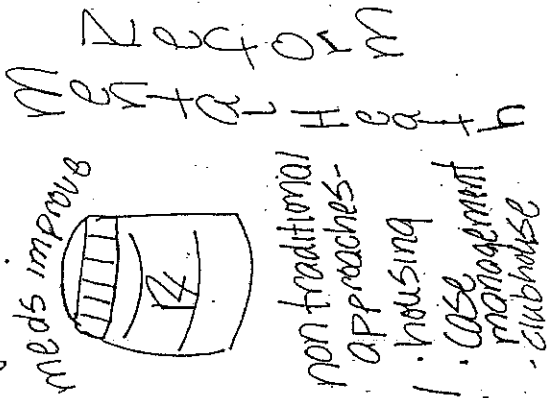 Reform
Mental Heath
meds improve
nontraditional
approaches-
· housing
· case
management
· clubhouse